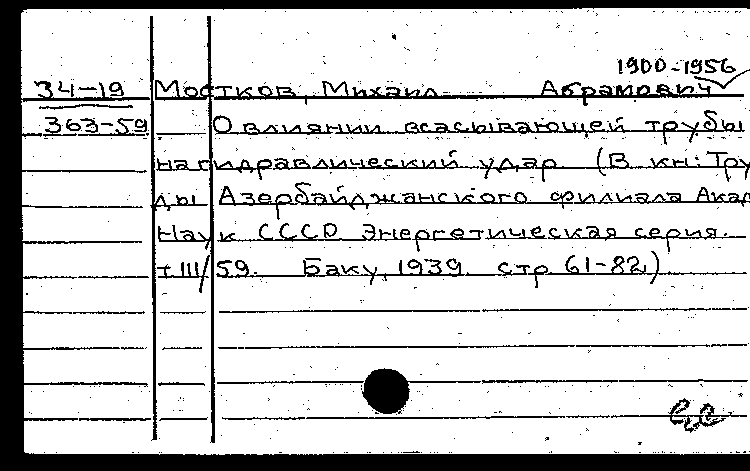 1900-1956
34-19 Мостков, Михаил Абрамович
363-59 О влиянии всасывающей трубы
на гидравлический удар (В кн: Тру
ды Азербайджанского филиала Акад
Наук СССР Энергетическая серия.
т III/59. Баку, 1939. стр 61-82)